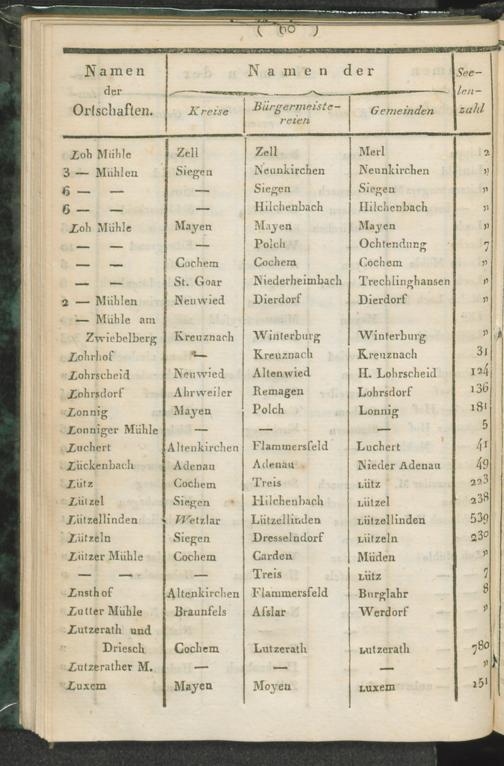 ( 60 )
Namen der Ortschaften. Namen der Seelenzahl
Kreise Bürgermeistereien Gemeinden
Loh Mühle Zell Zell Merl 2
3 — Mühlen Siegen Neunkirchen Neunkirchen "
6 — — — Siegen Siegen "
6 — — — Hilchenbach Hilchenbach "
Loh Mühle Mayen Mayen Mayen "
— — — Polch Ochtendung 7
— — Cochem Cochem Cochem "
— — St. Goar Niederheimbach Trechlinghausen "
2 — Mühlen Neuwied Dierdorf Dierdorf "
— Mühle am
Zwiebelberg Kreuznach Winterburg Winterburg "
Lohrhof — Kreuznach Kreuznach 31
Lohrscheid Neuwied Altenwied H. Lohrscheid 124
Lohrsdorf Ahrweiler Remagen Lohrsdorf 136
Lonnig Mayen Polch Lonnig 181
Lonniger Mühle — — — 5
Luchert Altenkirchen Flammersfeld Luchert 41
Lückenbach Adenau Adenau Nieder Adenau 49
Lütz Cochem Treis Lütz 223
Lützel Siegen Hilchenbach Lützel 238
Lützellinden Wetzlar Lützellinden Lützellinden 539
Lützeln Siegen Dresselndorf Lützeln 230
Lützer Mühle Cochem Carden Müden "
— — — Treis Lütz 7
Lusthof Altenkirchen Flammersfeld Burglahr 8
Lutter Mühle Braunfels Aſslar Werdorf "
Lutzerath und
Driesch Cochem Lutzerath Lutzerath 780
Lutzerather M. — — — "
Luxem Mayen Moyen Luxem 151